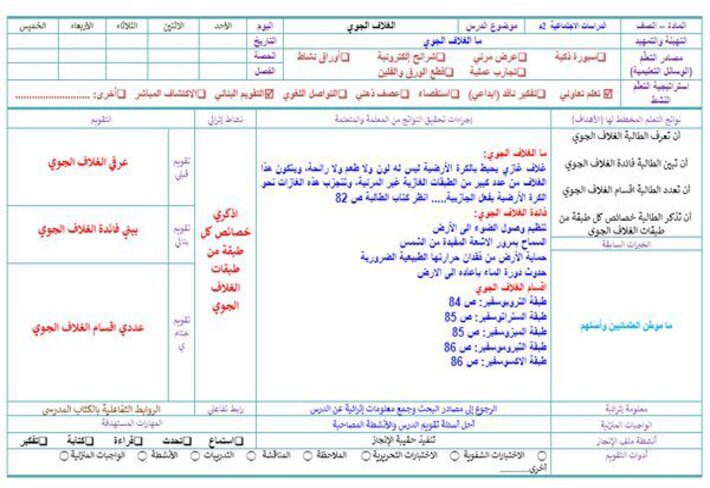 المادة – الصف
الدراسات الاجتماعية 2م
موضوع الدرس
الغلاف الجوي
اليوم
الأحد
الاثنين
الثلاثاء
الأربعاء
الخميس
التهيئة والتمهيد
ما الغلاف الجوي
التاريخ
مصادر التعلم
(الوسائل التعليمية)
سبورة ذكية
عرض مرئي
شرائح إلكترونية
أوراق نشاط
تجارب عملية
قطع الورق والفلين
الحصة
الفصل
استراتيجية التعلم
النشط
تعلم تعاوني
تفكير ناقد (إبداعي)
استقصاء
عصف ذهني
التواصل اللغوي
التقويم البنائي
الاكتشاف المباشر
أخرى: ............................
نواتج التعلم المخطط لها (الأهداف)
إجراءات تحقيق النواتج من المعلمة والمتعلمة
نشاط إثرائي
التقويم
أن تعرف الطالبة الغلاف الجوي
أن تبين الطالبة فائدة الغلاف الجوي
أن تعدد الطالبة اقسام الغلاف الجوي
أن تذكر الطالبة خصائص كل طبقة من
طبقات الغلاف الجوي
الخبرات السابقة
ما موطن العثمانيين وأصلهم
ما الغلاف الجوي:
غلاف غازي يحيط بالكرة الأرضية ليس له لون ولا طعم ولا رائحة، ويتكون هذا
الغلاف من عدد كبير من الطبقات الغازية غير المرئية، وتنجزب هذه الغازات نحو
الكرة الأرضية بفعل الجازبية..... انظر كتاب الطالبة ص 82
فائدة الغلاف الجوي:
تنظيم وصول الضوء الى الأرض
السماح بمرور الاشعة المفيدة من الشمس
حماية الأرض من فقدان حرارتها الطبيعية الضرورية
حدوث دورة الماء باعاده الى الارض
اقسام الغلاف الجوي
طبقة التروبوسفير: ص 84
طبقة الستراتوسفير: ص 85
طبقة الميزوسفير: ص 85
طبقة الثيرموسفير: ص 86
طبقة الاكسوسفير: ص 86
اذكري
خصائص كل
طبقة من
طبقات
الغلاف
الجوي
تقويم
قبلي
عرفي الغلاف الجوي
تقويم
بنائي
بيني فائدة الغلاف الجوي
تقويم
ختام
ي
عددي اقسام الغلاف الجوي
معلومة إثرائية
الرجوع إلى مصادر البحث وجمع معلومات إثرائية عن الدرس
رابط تفاعلي
الروابط التفاعلية بالكتاب المدرسي
الواجبات المنزلية
أحل أسئلة تقويم الدرس والأنشطة المصاحبة
المهارات المستهدفة
أنشطة ملف الإنجاز
تنفيذ حقيبة الإنجاز
استماع
تحدث
قراءة
كتابة
تفكير
أدوات التقويم
الاختبارات الشفوية
الاختبارات التحريرية
الملاحظة
المناقشة
التدريبات
الأنشطة
الواجبات المنزلية
أخرى..............